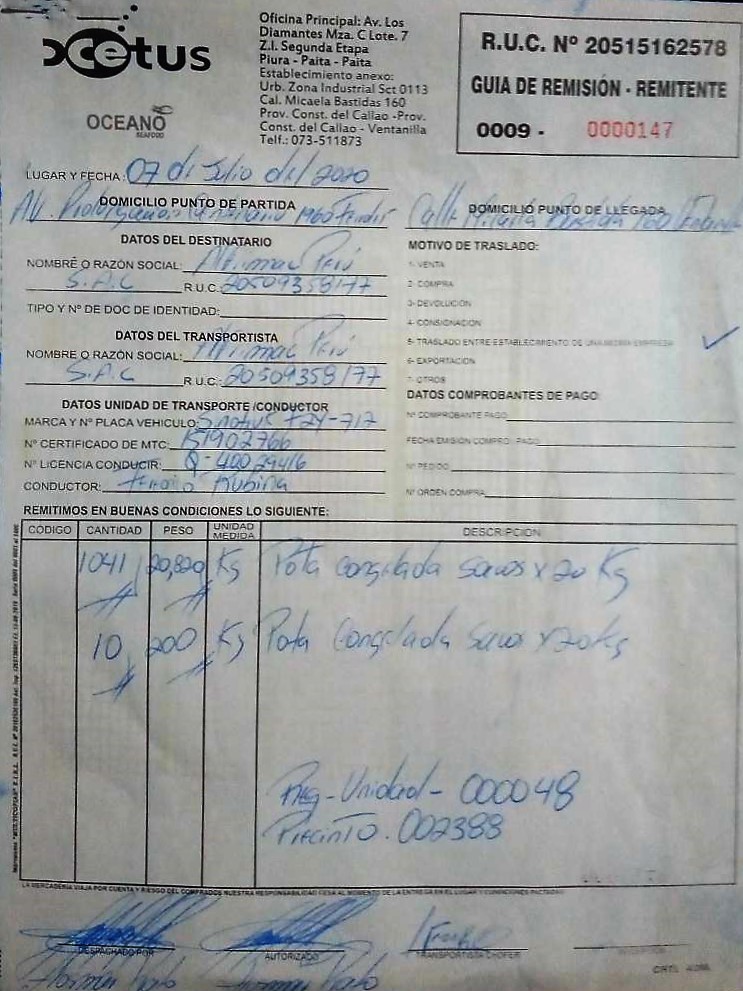 cetus
OCEANO
SEAFOOD
Oficina Principal: Av. Los
Diamantes Mza. C Lote. 7
Z.I. Segunda Etapa
Piura - Paita - Paita
Establecimiento anexo:
Urb. Zona Industrial Sct 0113
Cal. Micaela Bastidas 160
Prov. Const. del Callao -Prov.
Const. del Callao - Ventanilla
Telf.: 073-511873
R.U.C. Nº 20515162578
GUIA DE REMISIÓN - REMITENTE
0009 - 0000147
LUGAR Y FECHA: 07 de Julio del 2020
DOMICILIO PUNTO DE PARTIDA
Av.
DOMICILIO PUNTO DE LLEGADA
Calle
DATOS DEL DESTINATARIO
NOMBRE O RAZÓN SOCIAL: Altimac Perú
S.A.C R.U.C: 20509358177
TIPO Y Nº DE DOC DE IDENTIDAD:
DATOS DEL TRANSPORTISTA
NOMBRE O RAZÓN SOCIAL: Altimac Perú
S.A.C R.U.C: 20509358177
DATOS UNIDAD DE TRANSPORTE /CONDUCTOR
MARCA Y Nº PLACA VEHICULO:
Nº CERTIFICADO DE MTC: 151902766
Nº LICENCIA CONDUCIR: Q-40029416
CONDUCTOR: Rubina
MOTIVO DE TRASLADO:
1- VENTA
2- COMPRA
3- DEVOLUCION
4- CONSIGNACION
5- TRASLADO ENTRE ESTABLECIMIENTO DE UNA MISMA EMPRESA
6- EXPORTACION
7- OTROS
DATOS COMPROBANTES DE PAGO:
Nº COMPROBANTE PAGO
FECHA EMISION COMPRO. PAGO
Nº PEDIDO
Nº ORDEN COMPRA
REMITIMOS EN BUENAS CONDICIONES LO SIGUIENTE:
CÓDIGO CANTIDAD PESO UNIDAD MEDIDA DESCRIPCION
1041 20,820 Kg Pota Congelada Sacos x 20 Kg
10 200 Kg Pota Congelada Sacos x 20 Kg
Reg-Unidad- 000048
Precinto. 002388
LA MERCADERIA VIAJA POR CUENTA Y RIESGO DEL COMPRADOR NUESTRA RESPONSABILIDAD CESA AL MOMENTO DE LA ENTREGA EN EL LUGAR Y CONDICIONES PACTADAS
DESPACHADO POR
AUTORIZADO
TRANSPORTISTA CHOFER